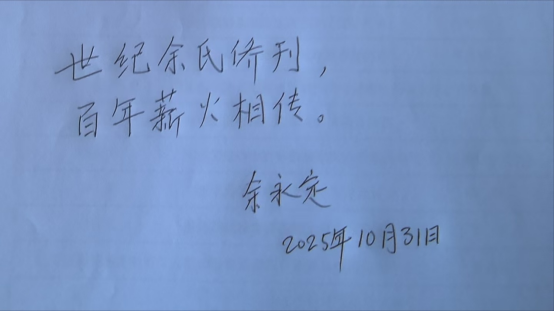 世纪余氏侨刊，
百年薪火相传。
余永定
2025年10月31日